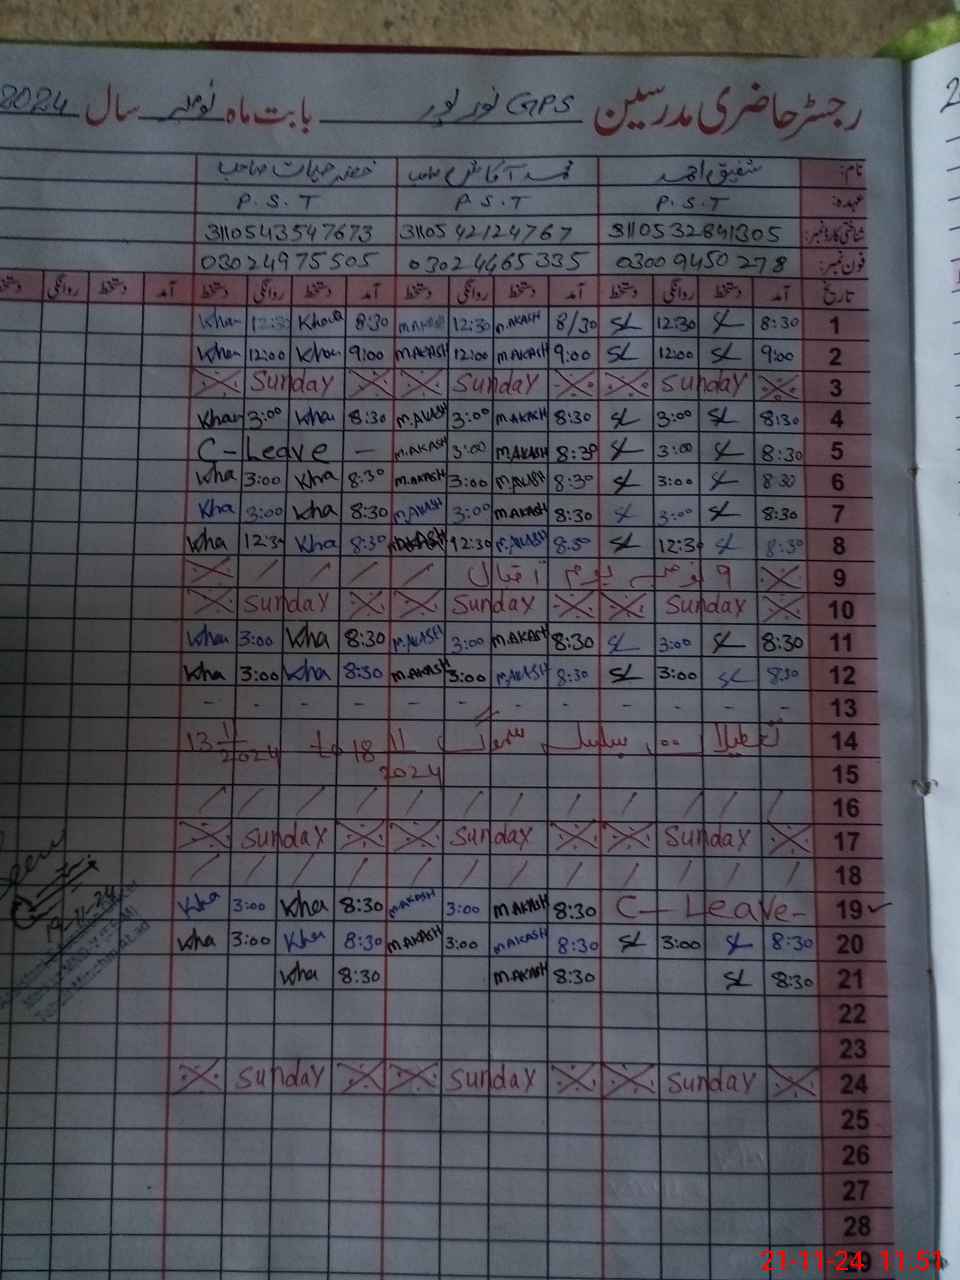 رجسٹر حاضری مدرسین GPS نور پور بابت ماہ نومبر سال 2024
نام: شفیق احمد محمد آکاش صاحب خضر حیات صاحب
عہدہ: P.S.T P.S.T P.S.T
شناختی کارڈ نمبر: 3110532841305 3110542124767 3110543547673
فون نمبر: 03009450278 03024465335 03024975505
تاریخ آمد دستخط روانگی دستخط آمد دستخط روانگی دستخط آمد دستخط روانگی دستخط آمد دستخط روانگی
1 8:30 SL 12:30 SL 8/30 M.AKASH 12:30 M.AKASH 8:30 Kha 12:30 Kha
2 9:00 SL 12:00 SL 9:00 M.AKASH 12:00 M.AKASH 9:00 Kha 12:00 Kha
3 Sunday Sunday Sunday
4 8:30 SL 3:00 SL 8:30 M.AKASH 3:00 M.AKASH 8:30 Kha 3:00 Kha
5 8:30 SL 3:00 SL 8:30 M.AKASH 3:00 M.AKASH C-Leave -
6 8:30 SL 3:00 SL 8:30 M.AKASH 3:00 M.AKASH 8:30 Kha 3:00 Kha
7 8:30 SL 3:00 SL 8:30 M.AKASH 3:00 M.AKASH 8:30 Kha 3:00 Kha
8 8:30 SL 12:30 SL 8:30 M.AKASH 12:30 M.AKASH 8:30 Kha 12:30 Kha
9 9 نومبر یوم اقبال
10 Sunday Sunday Sunday
11 8:30 SL 3:00 SL 8:30 M.AKASH 3:00 M.AKASH 8:30 Kha 3:00 Kha
12 8:30 SL 3:00 SL 8:30 M.AKASH 3:00 M.AKASH 8:30 Kha 3:00 Kha
13
14 تعطیلات بسلسلہ سموگ 13 11/2024 to 18 11/2024
15
16
17 Sunday Sunday Sunday
18
19 C-Leave- 8:30 M.AKASH 3:00 M.AKASH 8:30 Kha 3:00 Kha
19-11-24
20 8:30 SL 3:00 SL 8:30 M.AKASH 3:00 M.AKASH 8:30 Kha 3:00 Kha
21 8:30 SL 8:30 M.AKASH 8:30 Kha
22
23
24 Sunday Sunday Sunday
25
26
27
28
21-11-24 11:51